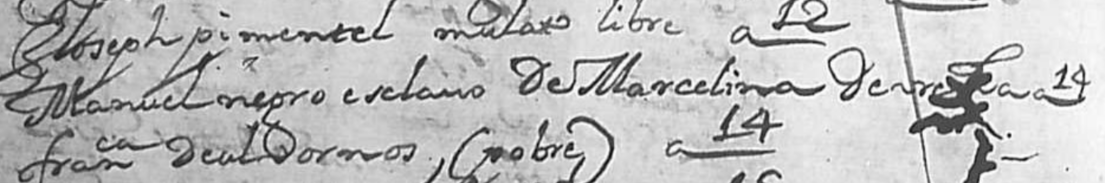 Joseph pimentel mulato libre a 12
Manuel negro esclauo De Marcelina De a 14
fran ca De (pobre) a 14